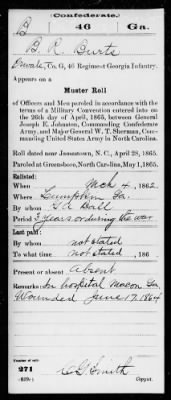 (Confederate.)
B 46 Ga.
B. R. Burts
Private, Co. G, 46 Regiment Georgia Infantry.
Appears on a
Muster Roll
of Officers and Men paroled in accordance with the
terms of a Military Convention entered into on
the 26th day of April, 1865, between General
Joseph E. Johnston, Commanding Confederate
Army, and Major General W. T. Sherman, Com-
manding United States Army in North Carolina.
Roll dated near Jamestown, N. C., April 28, 1865.
Paroled at Greensboro, North Carolina, May 1, 1865.
Enlisted:
When Mch 4, 1862.
Where Lumpkin Ga.
By whom Ball
Period 3 years or during the war
Last paid:
By whom not stated
To what time not stated, 186
Present or absent Absent
Remarks: In hospital Macon Ga.
Wounded June 17, 1864
Number of roll:
271
(639c) C. G. Smith
Copyist.